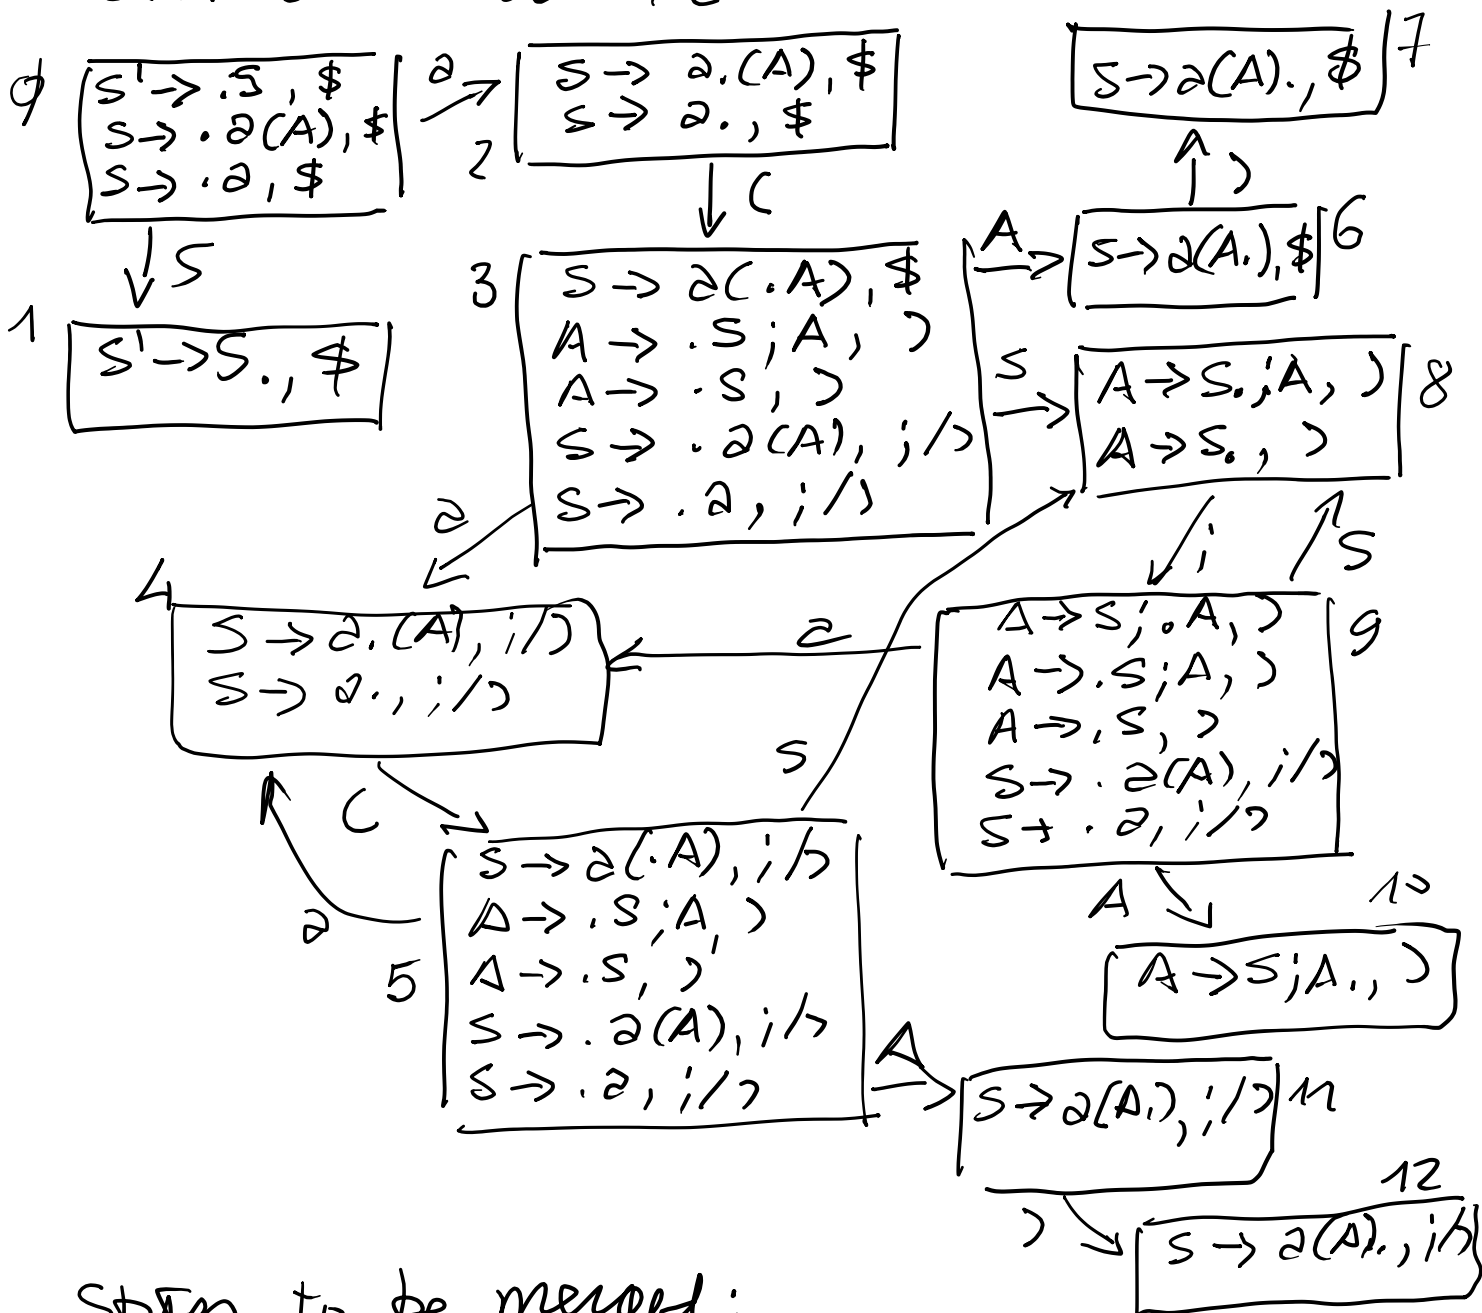 0
S' → .S, $
S → .a(A), $
S → .a, $
a
2
S → a.(A), $
S → a., $
S
1
S' → S., $
(
3
S → a(.A), $
A → .S;A, )
A → .S, )
S → .a(A), ;/)
S → .a, ;/)
A
6
S → a(A.), $
)
7
S → a(A)., $
S
8
A → S.;A, )
A → S., )
a
4
S → a.(A), ;/)
S → a., ;/)
a
;
S
9
A → S;.A, )
A → .S;A, )
A → .S, )
S → .a(A), ;/)
S → .a, ;/)
S
(
a
5
S → a(.A), ;/)
A → .S;A, )
A → .S, )
S → .a(A), ;/)
S → .a, ;/)
A
10
A → S;A., )
A
11
S → a(A.), ;/)
)
12
S → a(A)., ;/)
to be merged: